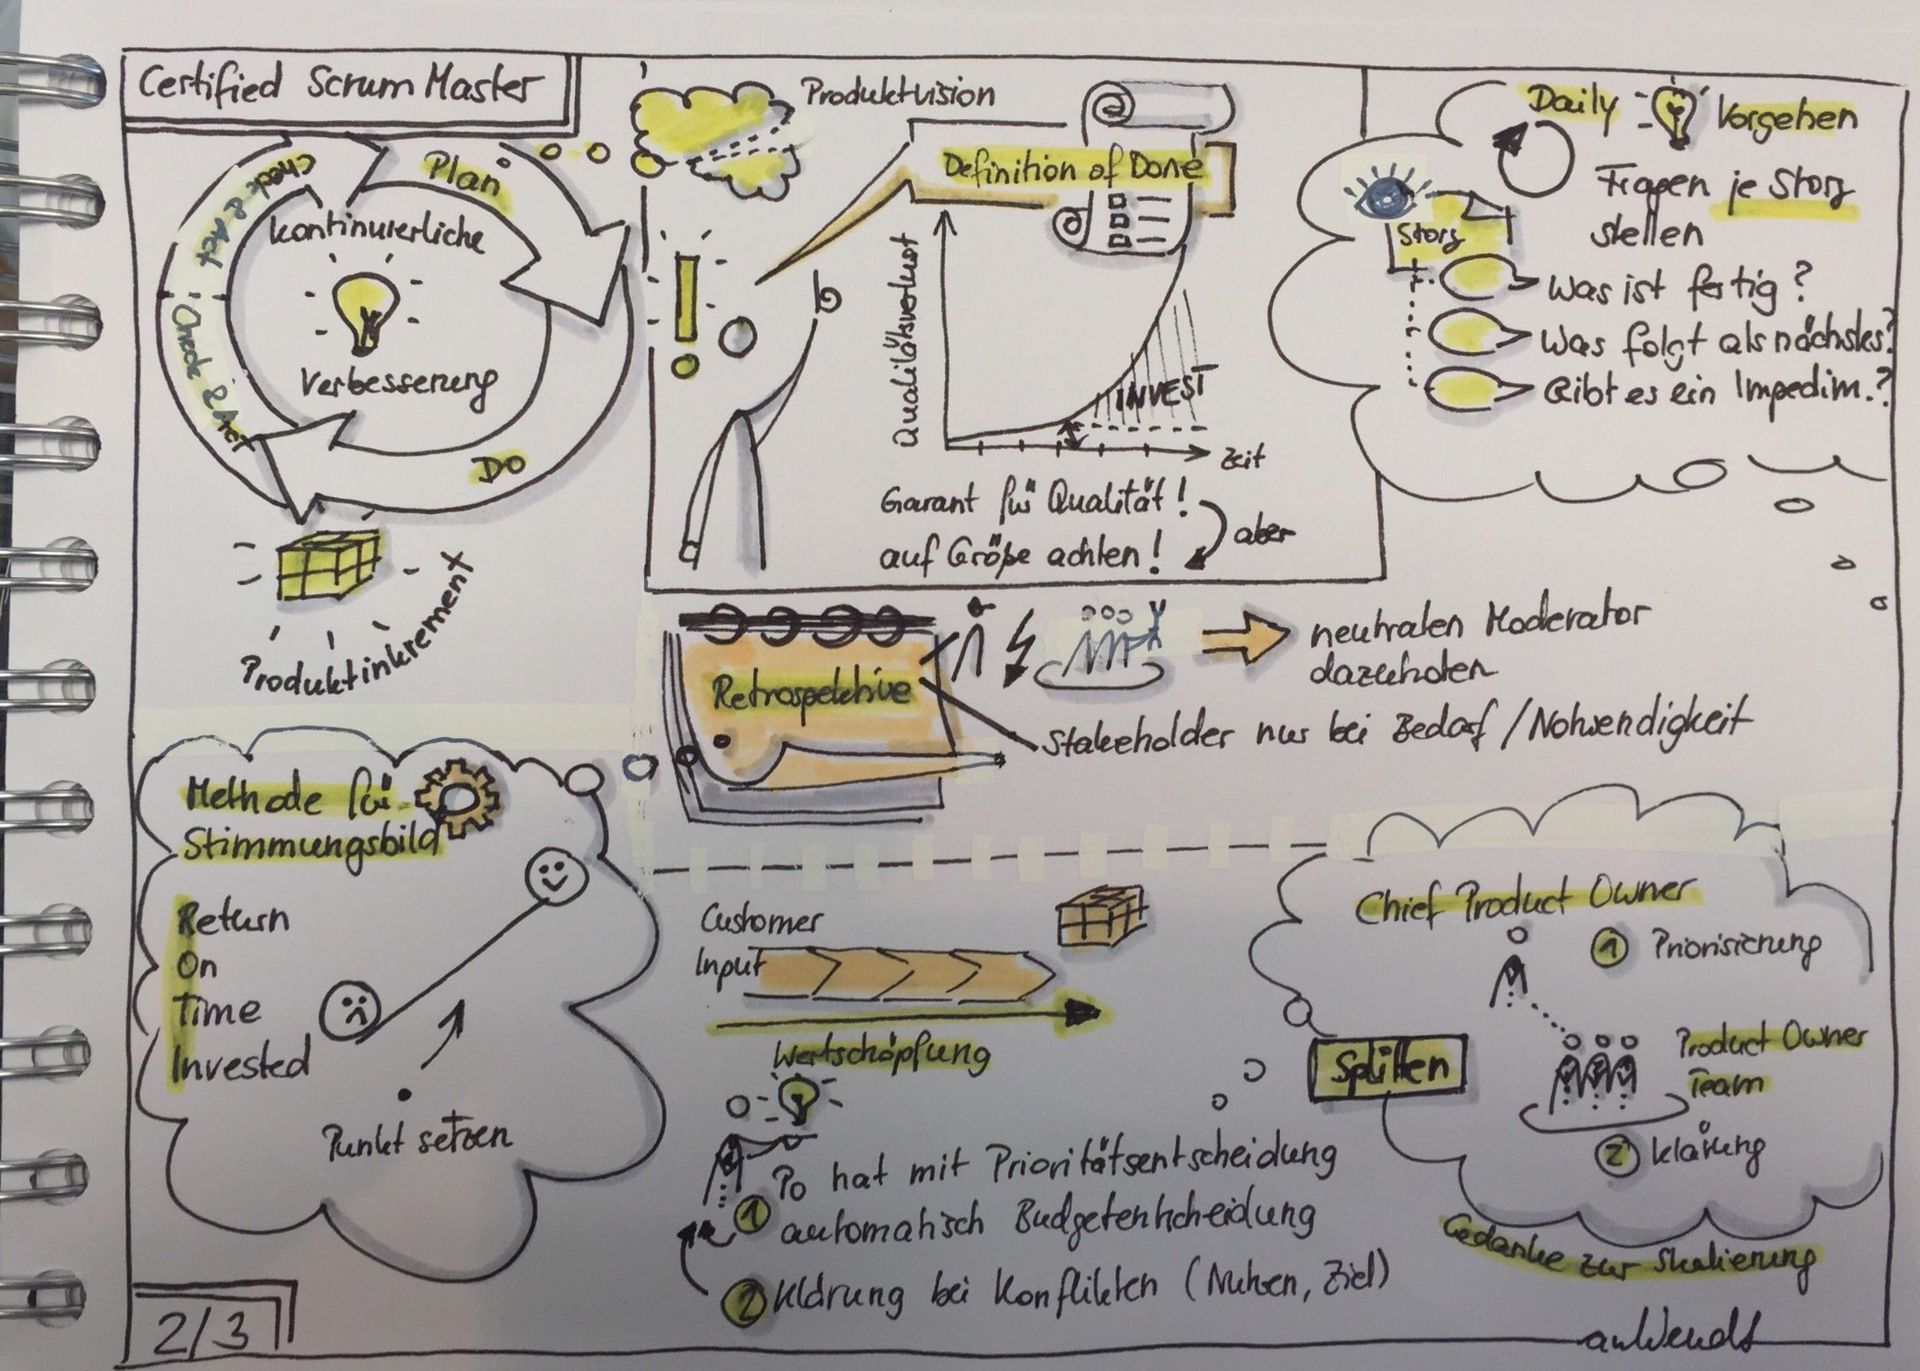 Certified Scrum Master
Plan
Do
Check & Act
Check & Act
kontinuierliche
Verbesserung
Produktinkrement
Produktvision
Definition of Done
Qualitätsverlust
INVEST
Zeit
Garant für Qualität!
auf Größe achten!
aber
Daily
Vorgehen
Fragen je Story
stellen
Story
Was ist fertig?
Was folgt als nächstes?
Gibt es ein Impedim.?
Retrospektive
neutralen Moderator
dazuholen
Stakeholder nur bei Bedarf / Notwendigkeit
Methode für
Stimmungsbild
Return
On
Time
Invested
Punkt setzen
Customer
Input
Wertschöpfung
1 Po hat mit Prioritätsentscheidung
automatisch Budgetentscheidung
2 Klärung bei Konflikten (Nutzen, Ziel)
Chief Product Owner
1 Priorisierung
Product Owner
Team
2 Klärung
Splitten
Gedanke zur Skalierung
2/3